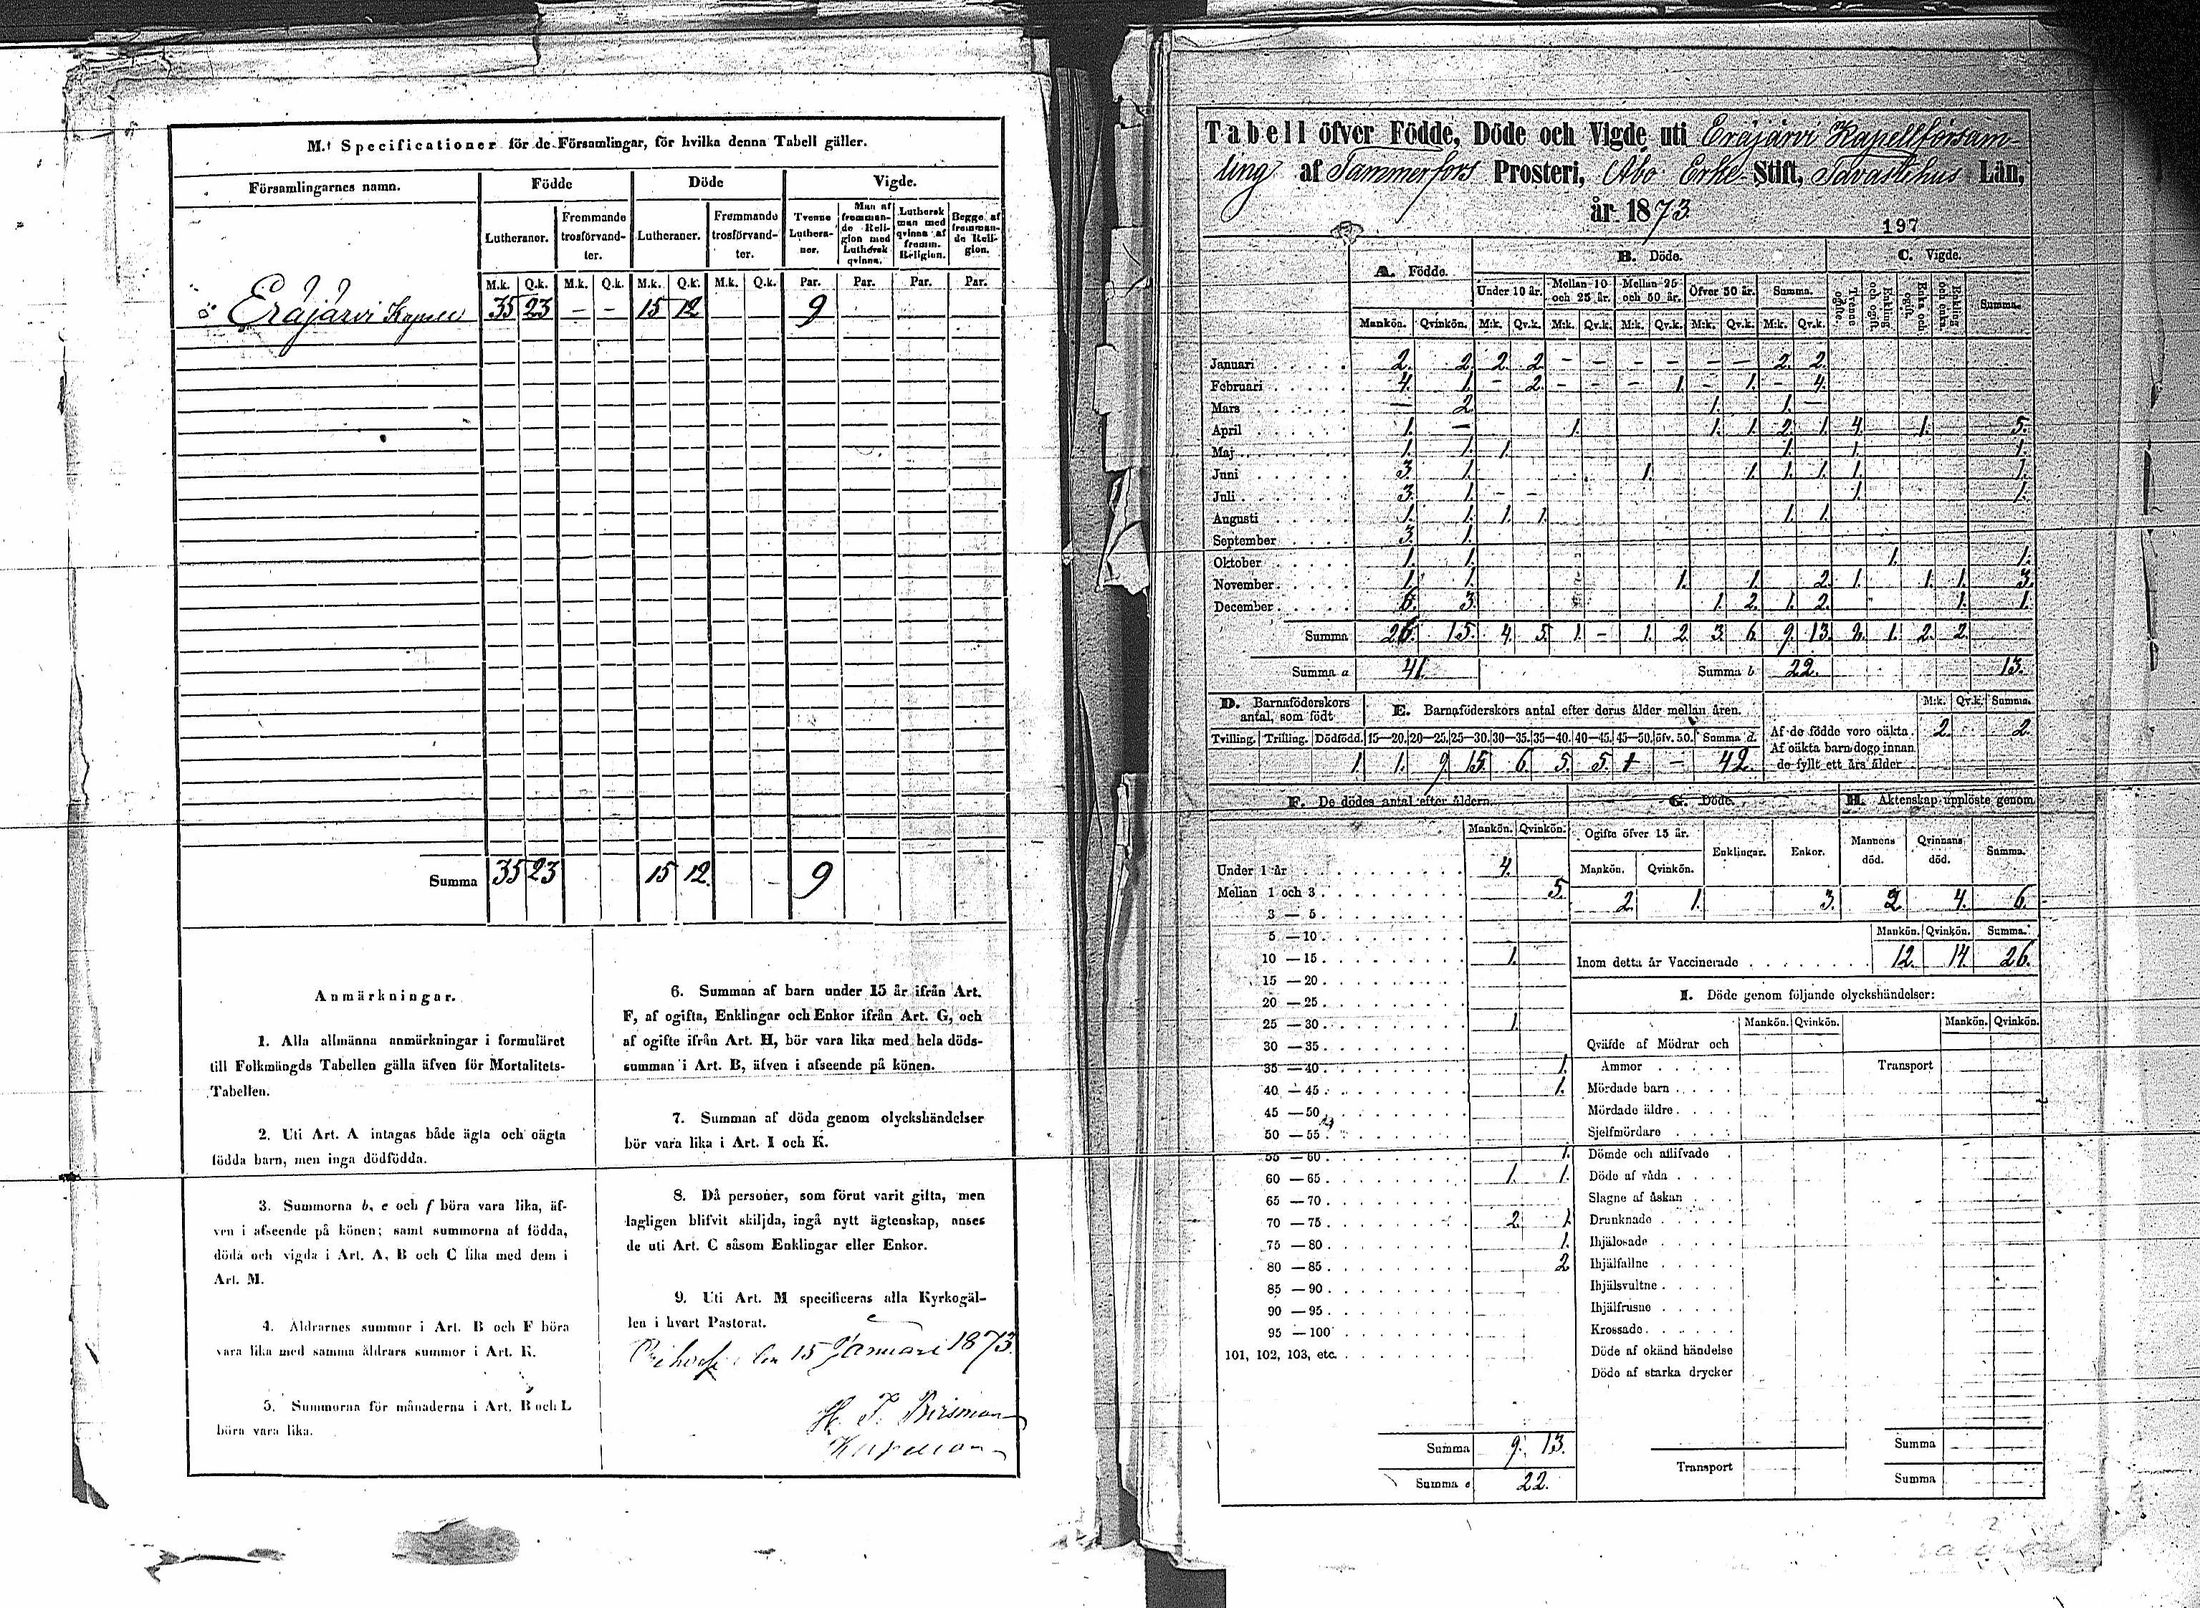 M.) Specificationer för de Församlingar, för hvilka denna Tabell gäller.
Församlingarnes namn. Födde Döde Vigde.
Lutheraner. Fremmande trosförvandter. Lutheraner. Fremmande trosförvandter. Tvenne Lutheraner. Man af fremmande Religion med Luthersk qvinna. Luthersk man med qvinna af fremm. Religion. Begge af fremmande Religion.
M.k. Q.k. M.k. Q.k. M.k. Q.k. M.k. Q.k. Par. Par. Par. Par.
Eräjärvi Kapell 35 23 — — 15 12 9
Summa 35 23 15 12. - 9
Anmärkningar.
1. Alla allmänna anmärkningar i formuläret
till Folkmängds Tabellen gälla äfven för Mortalitets-
Tabellen.
2. Uti Art. A intagas både ägta och oägta
födda barn, men inga dödfödda.
3. Summorna b, e och f böra vara lika, äf-
ven i afseende på könen; samt summorna af födda,
döda och vigda i Art. A, B och C lika med dem i
Art. M.
4. Åldrarnes summor i Art. B och F böra
vara lika med samma åldrars summor i Art. K.
5. Summorna för månaderna i Art. B och L
böra vara lika.
6. Summan af barn under 15 år ifrån Art.
F, af ogifta, Enklingar och Enkor ifrån Art. G, och
af ogifte ifrån Art. H, bör vara lika med hela döds-
summan i Art. B, äfven i afseende på könen.
7. Summan af döda genom olyckshändelser
bör vara lika i Art. I och K.
8. Då personer, som förut varit gifta, men
lagligen blifvit skiljda, ingå nytt ägtenskap, anses
de uti Art. C såsom Enklingar eller Enkor.
9. Uti Art. M specificeras alla Kyrkogäl-
len i hvart Pastorat.
den 15 Januari 1873.
H. J.
Kapellan
Tabell öfver Födde, Döde och Vigde uti Eräjärvi Kapellförsam-
ling af Tammerfors Prosteri, Åbo Erke- Stift, Tavastehus Län,
år 1873.
197
A. Födde. B. Döde. C. Vigde.
Under 10 år. Mellan 10 och 25 år. Mellan 25 och 50 år. Öfver 50 år. Summa. Tvenne ogifte. Enkling och ogift. Enka och ogift. Enkling och enka. Summa.
Mankön. Qvinkön. M:k. Qv.k. M:k. Qv.k. M:k. Qv.k. M:k. Qv.k. M:k. Qv.k.
Januari 2. 2. 2. 2. - - - - - - 2. 2.
Februari 4. 1. - 2. - - - 1. - 1. - 4.
Mars — 2. 1. 1. —
April 1. — 1. 1. 1. 2. 1. 4. 1. 5.
Maj 1. 1. 1. 1. 1. 1.
Juni 3. 1. 1. 1. 1. 1. 1. 1.
Juli 3. 1. - - 1. 1.
Augusti 1. 1. 1. 1. 1. 1.
September 3. 1.
Oktober 1. 1. 1. 1.
November 1. 1. 1. 1. 2. 1. 1. 1. 3.
December 6. 3. 1. 2. 1. 2. 1. 1.
Summa 26. 15. 4. 5. 1. - 1. 2. 3. 6. 9. 13. 1. 2. 2.
Summa a 41. Summa b 22. 13.
D. Barnaföderskors antal, som födt
E. Barnaföderskors antal efter deras ålder mellan åren.
M:k. Qv.k. Summa.
Tvilling. Trilling. Dödfödd. 15—20. 20—25. 25—30. 30—35. 35—40. 40—45. 45—50. öfv. 50. Summa d.
1. 1. 9. 15. 6. 5. 5. - 42.
Af de födde voro oäkta. 2. 2.
Af oäkta barn dogo innan
de fyllt ett års ålder
F. De dödes antal efter åldern.
Mankön. Qvinkön.
Under 1 år 4.
Mellan 1 och 3 5.
3 — 5
5 — 10
10 — 15 1.
15 — 20
20 — 25
25 — 30 1.
30 — 35
35 — 40 1.
40 — 45 1.
45 — 50
50 — 55
55 — 60 1.
60 — 65 1. 1.
65 — 70
70 — 75 2. 1.
75 — 80 1.
80 — 85 2
85 — 90
90 — 95
95 — 100
101, 102, 103, etc.
Summa 9. 13.
Summa e 22.
G. Döde.
Ogifte öfver 15 år. Enklingar. Enkor.
Mankön. Qvinkön.
2. 1. 3.
H. Äktenskap upplöste genom
Mannens död. Qvinnans död. Summa.
2 4. 6.
Mankön. Qvinkön. Summa.
Inom detta år Vaccinerade 12. 14. 26.
I. Döde genom följande olyckshändelser:
Mankön. Qvinkön. Mankön. Qvinkön.
Qväfde af Mödrar och
Ammor Transport
Mördade barn
Mördade äldre
Sjelfmördare
Dömde och aflifvade
Döde af våda
Slagne af åskan
Drunknade
Ihjälosade
Ihjälfallne
Ihjälsvultne
Ihjälfrusne
Krossade
Döde af okänd händelse
Döde af starka drycker
Summa
Transport
Summa